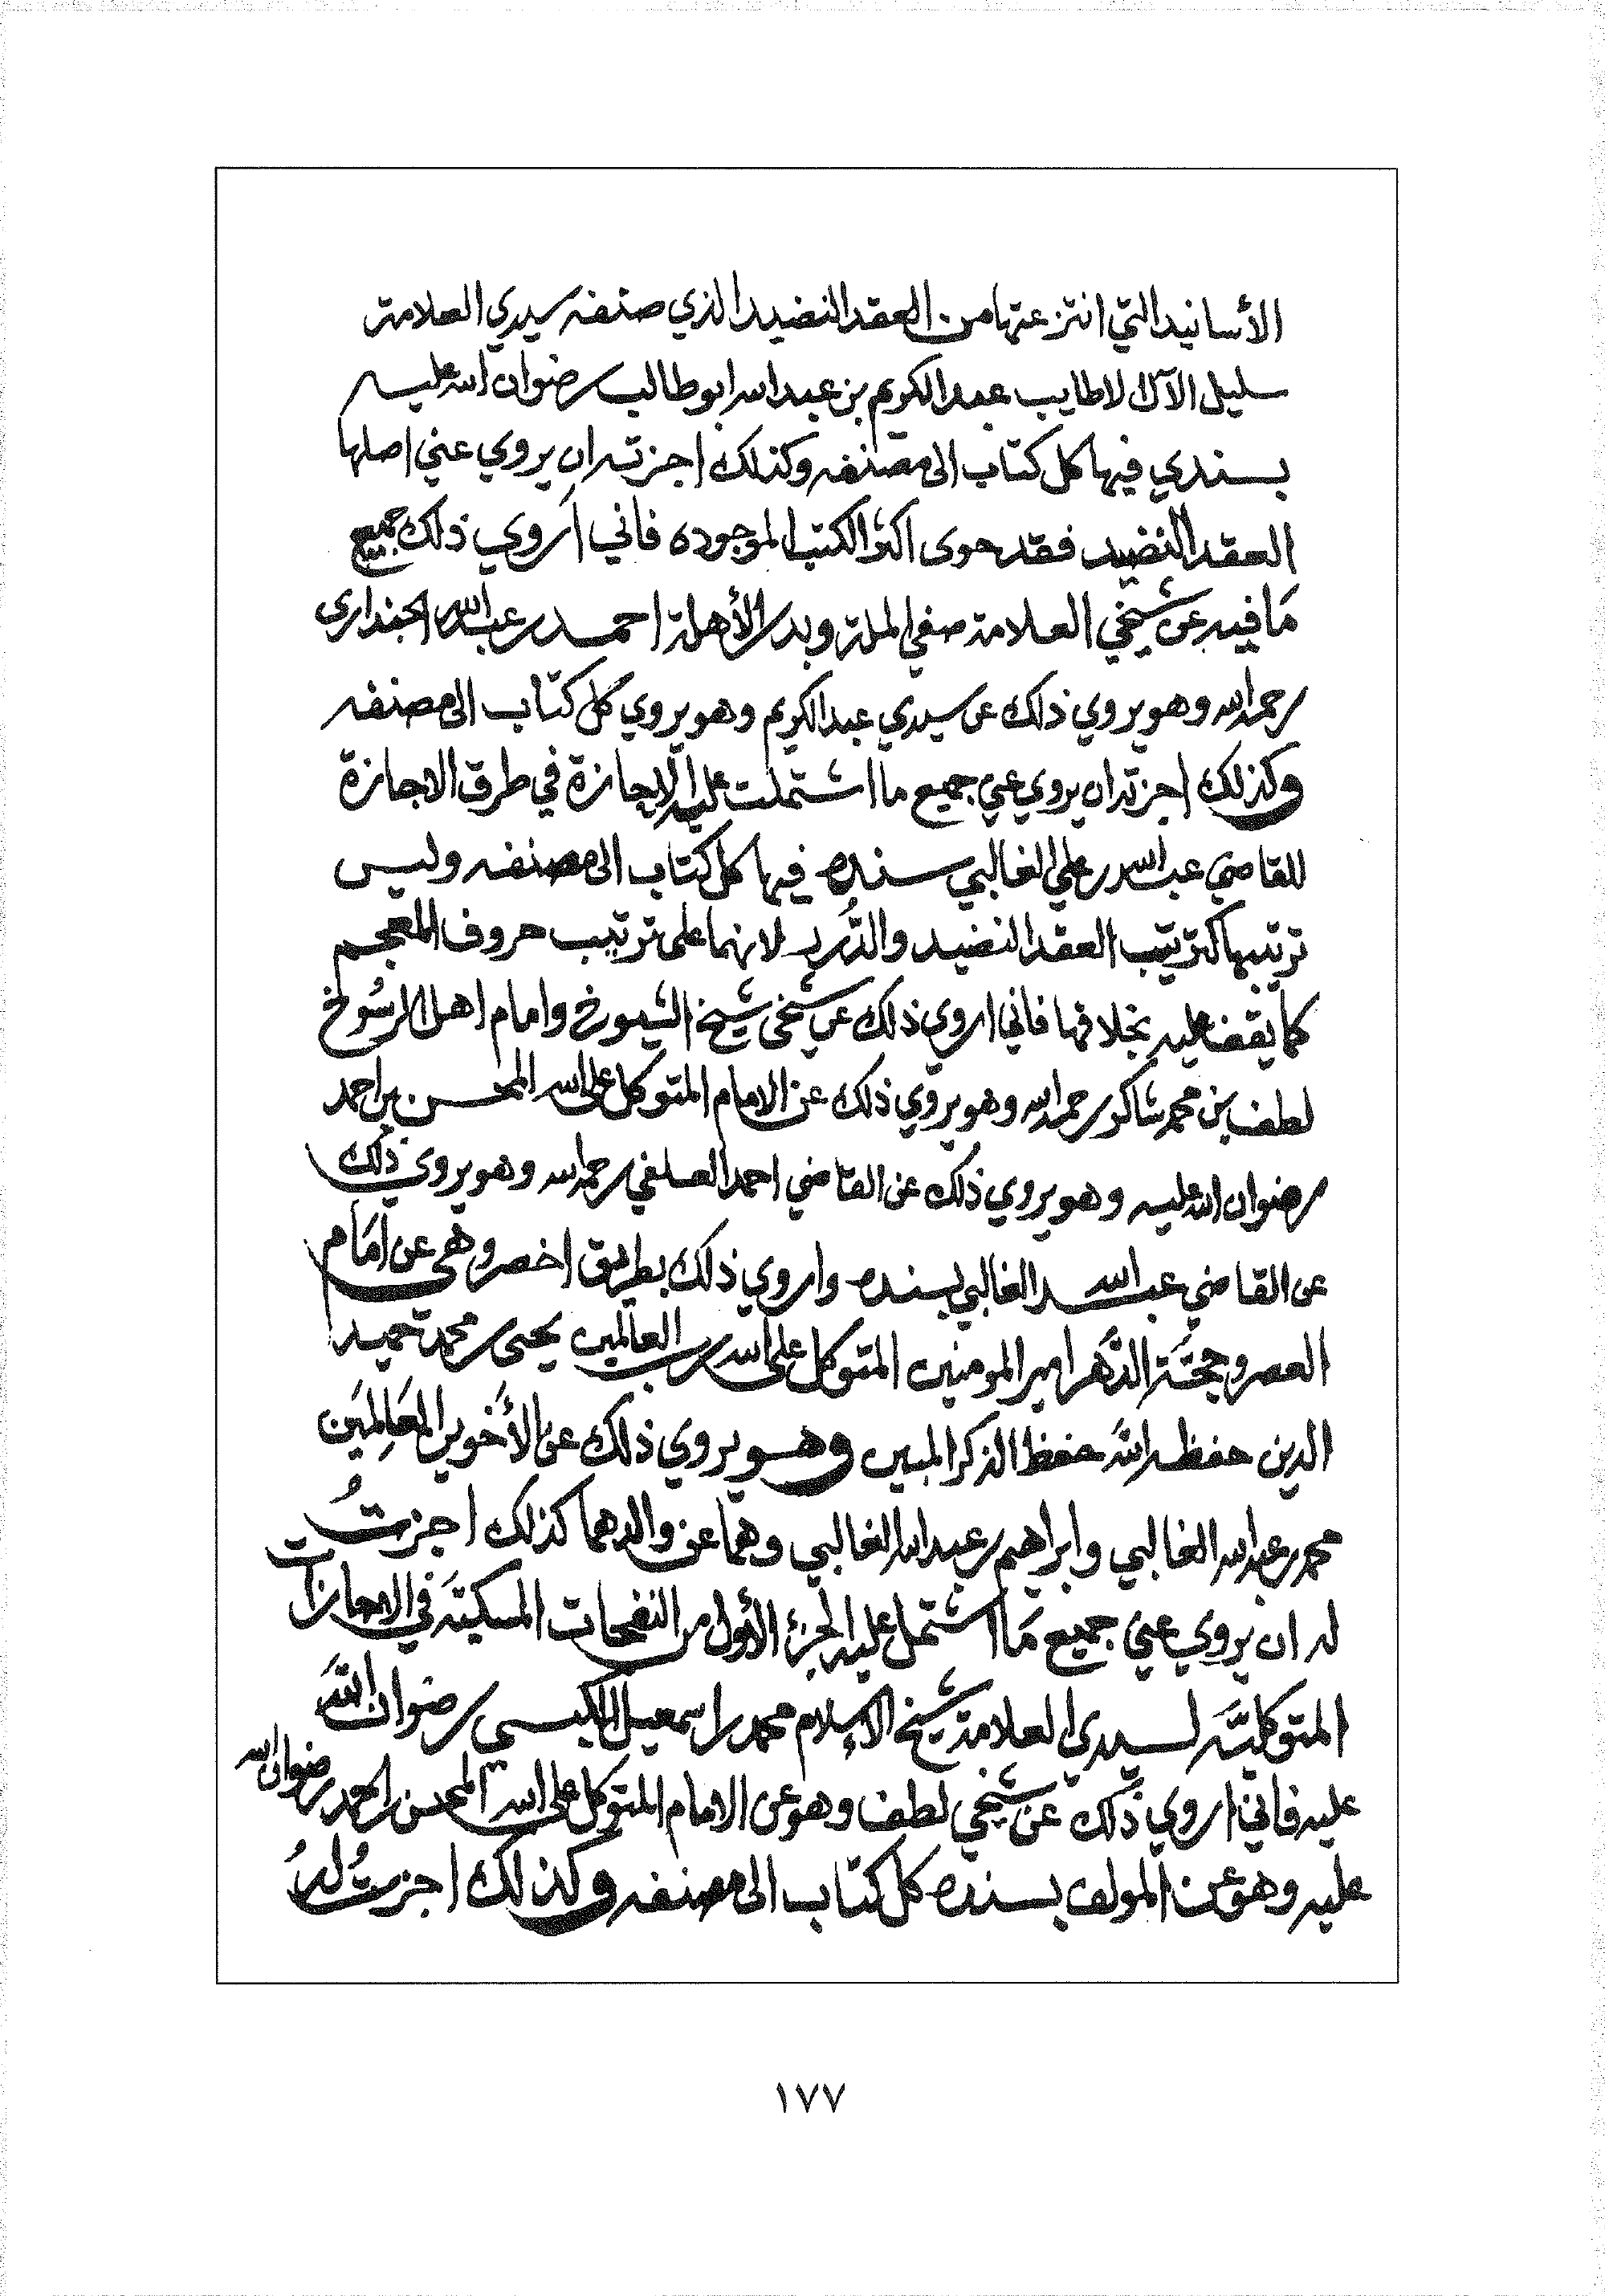 الأسانيد التي انتزعتها من العقد النضيد الذي صنفه سيدي العلامة
سليل الآل الاطايب عبد الكريم بن عبد الله ابو طالب رضوان الله عليه
بسندي فيها كل كتاب الى مصنفه وكذلك اجزته ان يروي عني اصلها
العقد النضيد فقد حوى اكثر الكتب الموجوده فاني اروي ذلك جميع
مَا فيه عن شيخي العلامة صفي الملة وبدر الأهلة احمد بن عبد الله الجنداري
رحمه الله وهو يروي ذلك عن سيدي عبد الكريم وهو يروي كل كتاب الى مصنفه
وكذلك اجزته ان يروي عني جميع ما اشتملت عليه الاجازة في طرق الاجازة
للقاضي عبد الله بن علي الغالبي سنده فيها كل كتاب الى مصنفه وليس
ترتيبها كترتيب العقد النضيد والدُّرر لانهما على ترتيب حروف المعجم
كما يقف عليه بخلافها فاني اروي ذلك عن شيخي شيخ الشيوخ وامام اهل الرسُوخ
لطف بن محمد شاكر رحمه الله وهو يروي ذلك عن الامام المتوكل على الله المحسن بن احمد
رضوان الله عليه وهو يروي ذلك عن القاضي احمد العلفي رحمه الله وهو يروي ذلك
عن القاضي عبد الله الغالبي بسنده واروي ذلك بطريق اخصر وهي عن امَام
العصر وحجَّة الدَّهر امير المومنين المتوكل على الله رب العالمين يحيى بن محمد حميد
الدين حفظه اللهَ حفظ الذكر المبين وهو يروي ذلك عن الأخوين العَالِمَين
محمد بن عبد الله الغالبي وابراهيم بن عبد الله الغالبي وهما عن والدهما كذلك اجزتُ
له ان يروي عني جميع مَا اشتمل عليه الجزء الأول من النفحات المسكيَّة في الاجازات
المتوكليَّه لسيدي العلامة شيخ الإسلام محمد بن اسمعيل الكبسي رضوان اللهَ
عليه فاني اروي ذلك عن شيخي لطف وهو عن الامام المتوكل على الله المحسن بن احمد رضوان الله
عليه وهو عن المولف بسنده كل كتاب الى مصنفه وكذلك اجزتُ لهُ
١٧٧